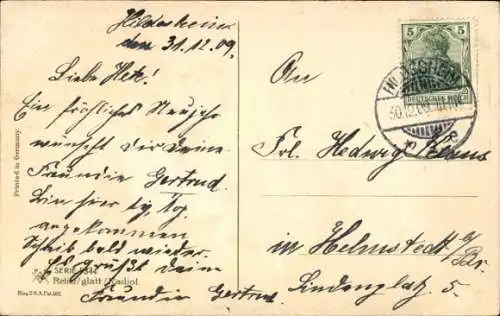 Hildesheim
den 31.12.09.
Liebe Hete!
Ein fröhliches Neujahr
wünscht Dir Deine
Freundin Gertrud.
Bin hier gut
angekommen
Schreib bald wieder.
Es grüßt Deine
Freundin Gertrud
An
Frl. Hedwig
in Helmstedt
Lindenplatz 5.
5 5
DEUTSCHES REICH
HILDESHEIM
30.12.09
Printed in Germany.
SERIE
Relief/glatt